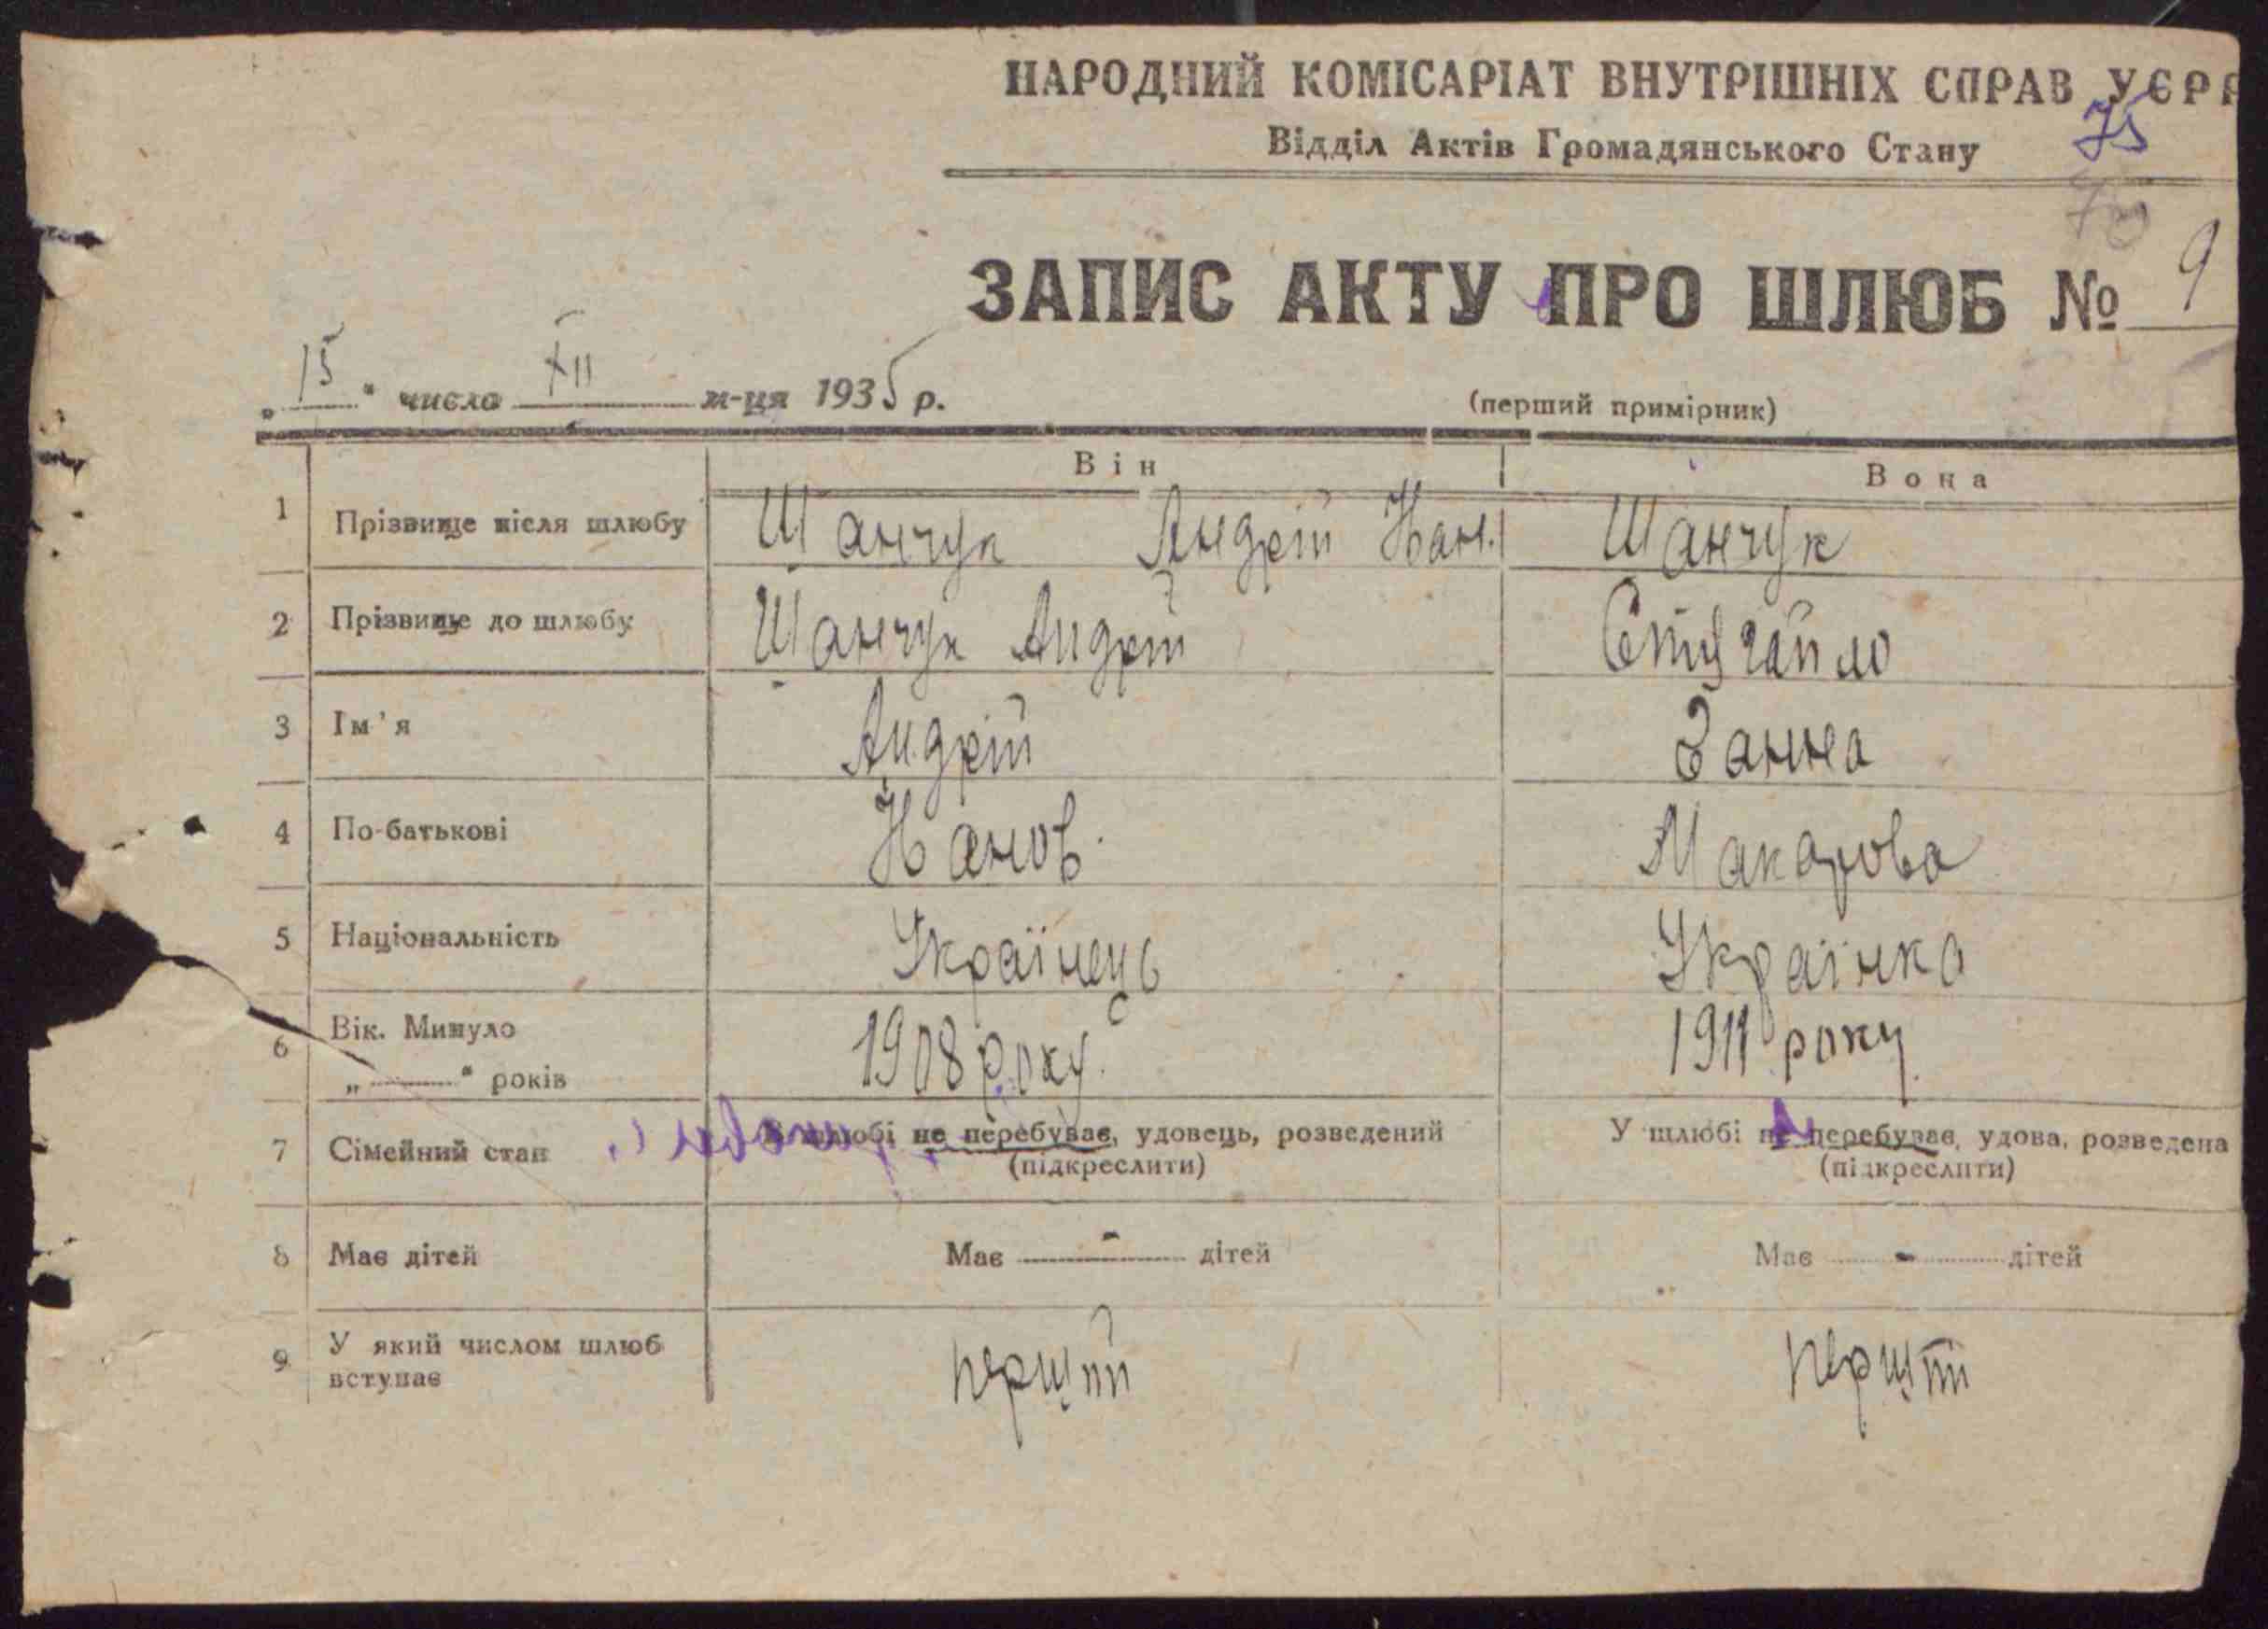 НАРОДНИЙ КОМІСАРІАТ ВНУТРІШНІХ СПРАВ УСРР
75
Відділ Актів Громадянського Стану
ЗАПИС АКТУ ПРО ШЛЮБ № 9
„15“ число XII м-ця 1935 р.
(перший примірник)
Він Вона
1 Прізвище після шлюбу Шанчук Андрій Шанчук
2 Прізвище до шлюбу Шанчук Андрій
3 Ім'я Андрій Ганна
4 По-батькові Макарова
5 Національність Українець Українка
6 Вік. Минуло 1908 року 1911 року
„ “ років
7 Сімейний стан У шлюбі не перебуває, удовець, розведений У шлюбі не перебуває, удова, розведена
(підкреслити) (підкреслити)
8 Має дітей Має - дітей Має - дітей
9 У який числом шлюб вступає перший перший